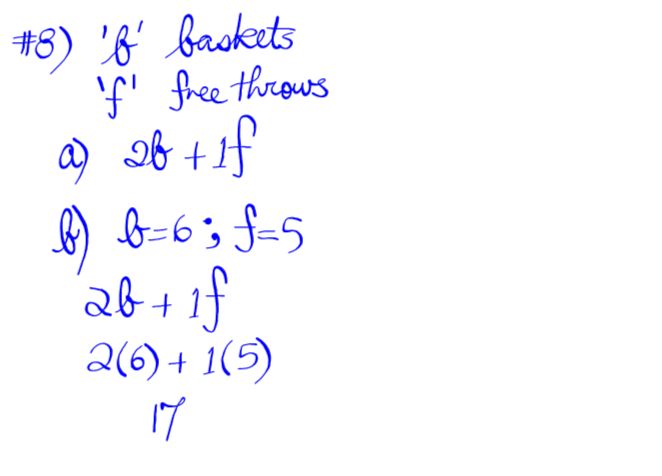 #8) 'b' baskets
'f' free throws
a) 2b + 1f
b) b=6 ; f=5
2b + 1f
2(6) + 1(5)
17